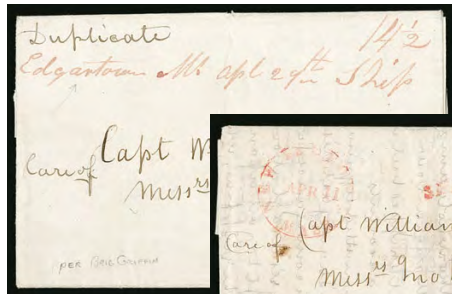 Duplicate
14½
Edgartown Ms Apl 29th Ship
Care of Capt W
Messrs
PER BRIG GRIFFIN
APR 11
Care of Capt William
Messrs Jno